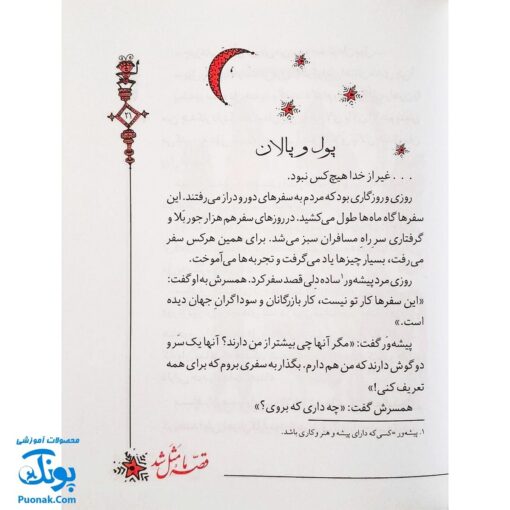 ۲۱
پول و پالان
... غیر از خدا هیچ کس نبود.
روزی و روزگاری بود که مردم به سفرهای دور و دراز می‌رفتند. این
سفرها گاه ماه‌ها طول می‌کشید. در روزهای سفر هم هزار جور بَلا و
گرفتاری سرِ راهِ مسافران سبز می‌شد. برای همین هرکس سفر
می‌رفت، بسیار چیزها یاد می‌گرفت و تجربه‌ها می‌آموخت.
روزی مرد پیشه‌ور۱ ساده‌دلی قصد سفر کرد. همسرش به او گفت:
«این سفرها کار تو نیست، کار بازرگانان و سوداگرانِ جهان دیده
است.»
پیشه‌وَر گفت: «مگر آنها چی بیشتر از من دارند؟ آنها یک سَر و
دو گوش دارند که من هم دارم. بگذار به سفری بروم که برای همه
تعریف کنی!»
همسرش گفت: «چه داری که بروی؟»
۱. پیشه‌ور = کسی که دارای پیشه و هنر و کاری باشد.
قصه ما مَثَل شد
محصولات آموزشی
پونک
Puonak.Com